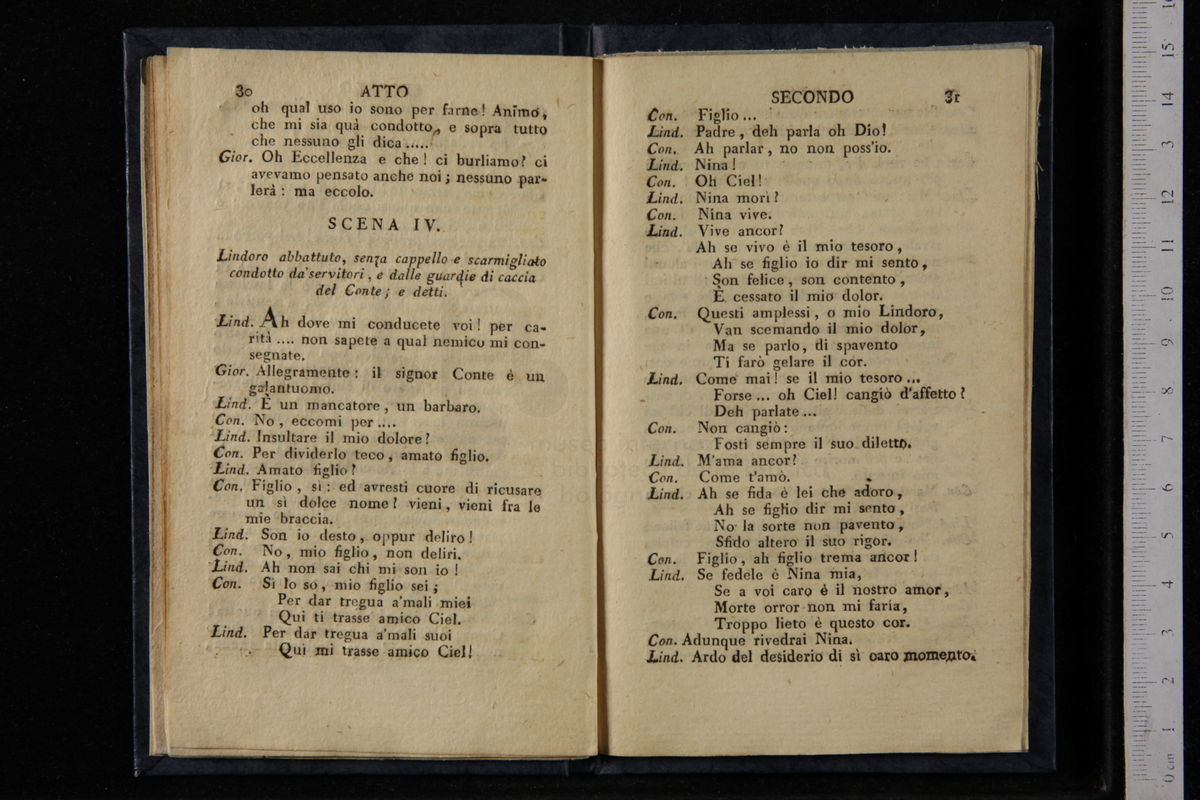 30 ATTO
oh qual uso io sono per farne! Animo,
che mi sia quà condotto, e sopra tutto
che nessuno gli dica.....
Gior. Oh Eccellenza e che! ci burliamo? ci
avevamo pensato anche noi; nessuno par-
lerà: ma eccolo.
SCENA IV.
Lindoro abbattuto, senza cappello e scarmigliato
condotto da'servitori, e dalle guardie di caccia
del Conte; e detti.
Lind. Ah dove mi conducete voi! per ca-
rità .... non sapete a qual nemico mi con-
segnate.
Gior. Allegramente: il signor Conte è un
galantuomo.
Lind. È un mancatore, un barbaro.
Con. No, eccomi per....
Lind. Insultare il mio dolore?
Con. Per dividerlo teco, amato figlio.
Lind. Amato figlio?
Con. Figlio, sì: ed avresti cuore di ricusare
un sì dolce nome? vieni, vieni fra le
mie braccia.
Lind. Son io desto, oppur deliro!
Con. No, mio figlio, non deliri.
Lind. Ah non sai chi mi son io!
Con. Sì lo so, mio figlio sei;
Per dar tregua a'mali miei
Qui ti trasse amico Ciel.
Lind. Per dar tregua a'mali suoi
Qui mi trasse amico Ciel!
SECONDO 31
Con. Figlio...
Lind. Padre, deh parla oh Dio!
Con. Ah parlar, no non poss'io.
Lind. Nina!
Con. Oh Ciel!
Lind. Nina morì?
Con. Nina vive.
Lind. Vive ancor?
Ah se vivo è il mio tesoro,
Ah se figlio io dir mi sento,
Son felice, son contento,
È cessato il mio dolor.
Con. Questi amplessi, o mio Lindoro,
Van scemando il mio dolor,
Ma se parlo, di spavento
Ti farò gelare il cor.
Lind. Come mai! se il mio tesoro...
Forse... oh Ciel! cangiò d'affetto?
Deh parlate...
Con. Non cangiò:
Fosti sempre il suo diletto.
Lind. M'ama ancor?
Con. Come t'amò.
Lind. Ah se fida è lei che adoro,
Ah se figlio dir mi sento,
No la sorte non pavento,
Sfido altero il suo rigor.
Con. Figlio, ah figlio trema ancor!
Lind. Se fedele è Nina mia,
Se a voi caro è il nostro amor,
Morte orror non mi faria,
Troppo lieto è questo cor.
Con. Adunque rivedrai Nina.
Lind. Ardo del desiderio di sì caro momento.
0 cm 1 2 3 4 5 6 7 8 9 10 11 12 13 14 15